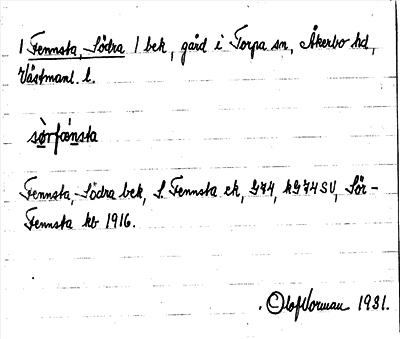 / Fennsta, Södra / bek, gård i Torpa sn, Åkerbo hd,
Västmanl. l.
sørfænsta
Fennsta, Södra bek, S. Fennsta ek, G74, kG74SV, Sör-
Fennsta kb 1916.
Olof Norman 1931.